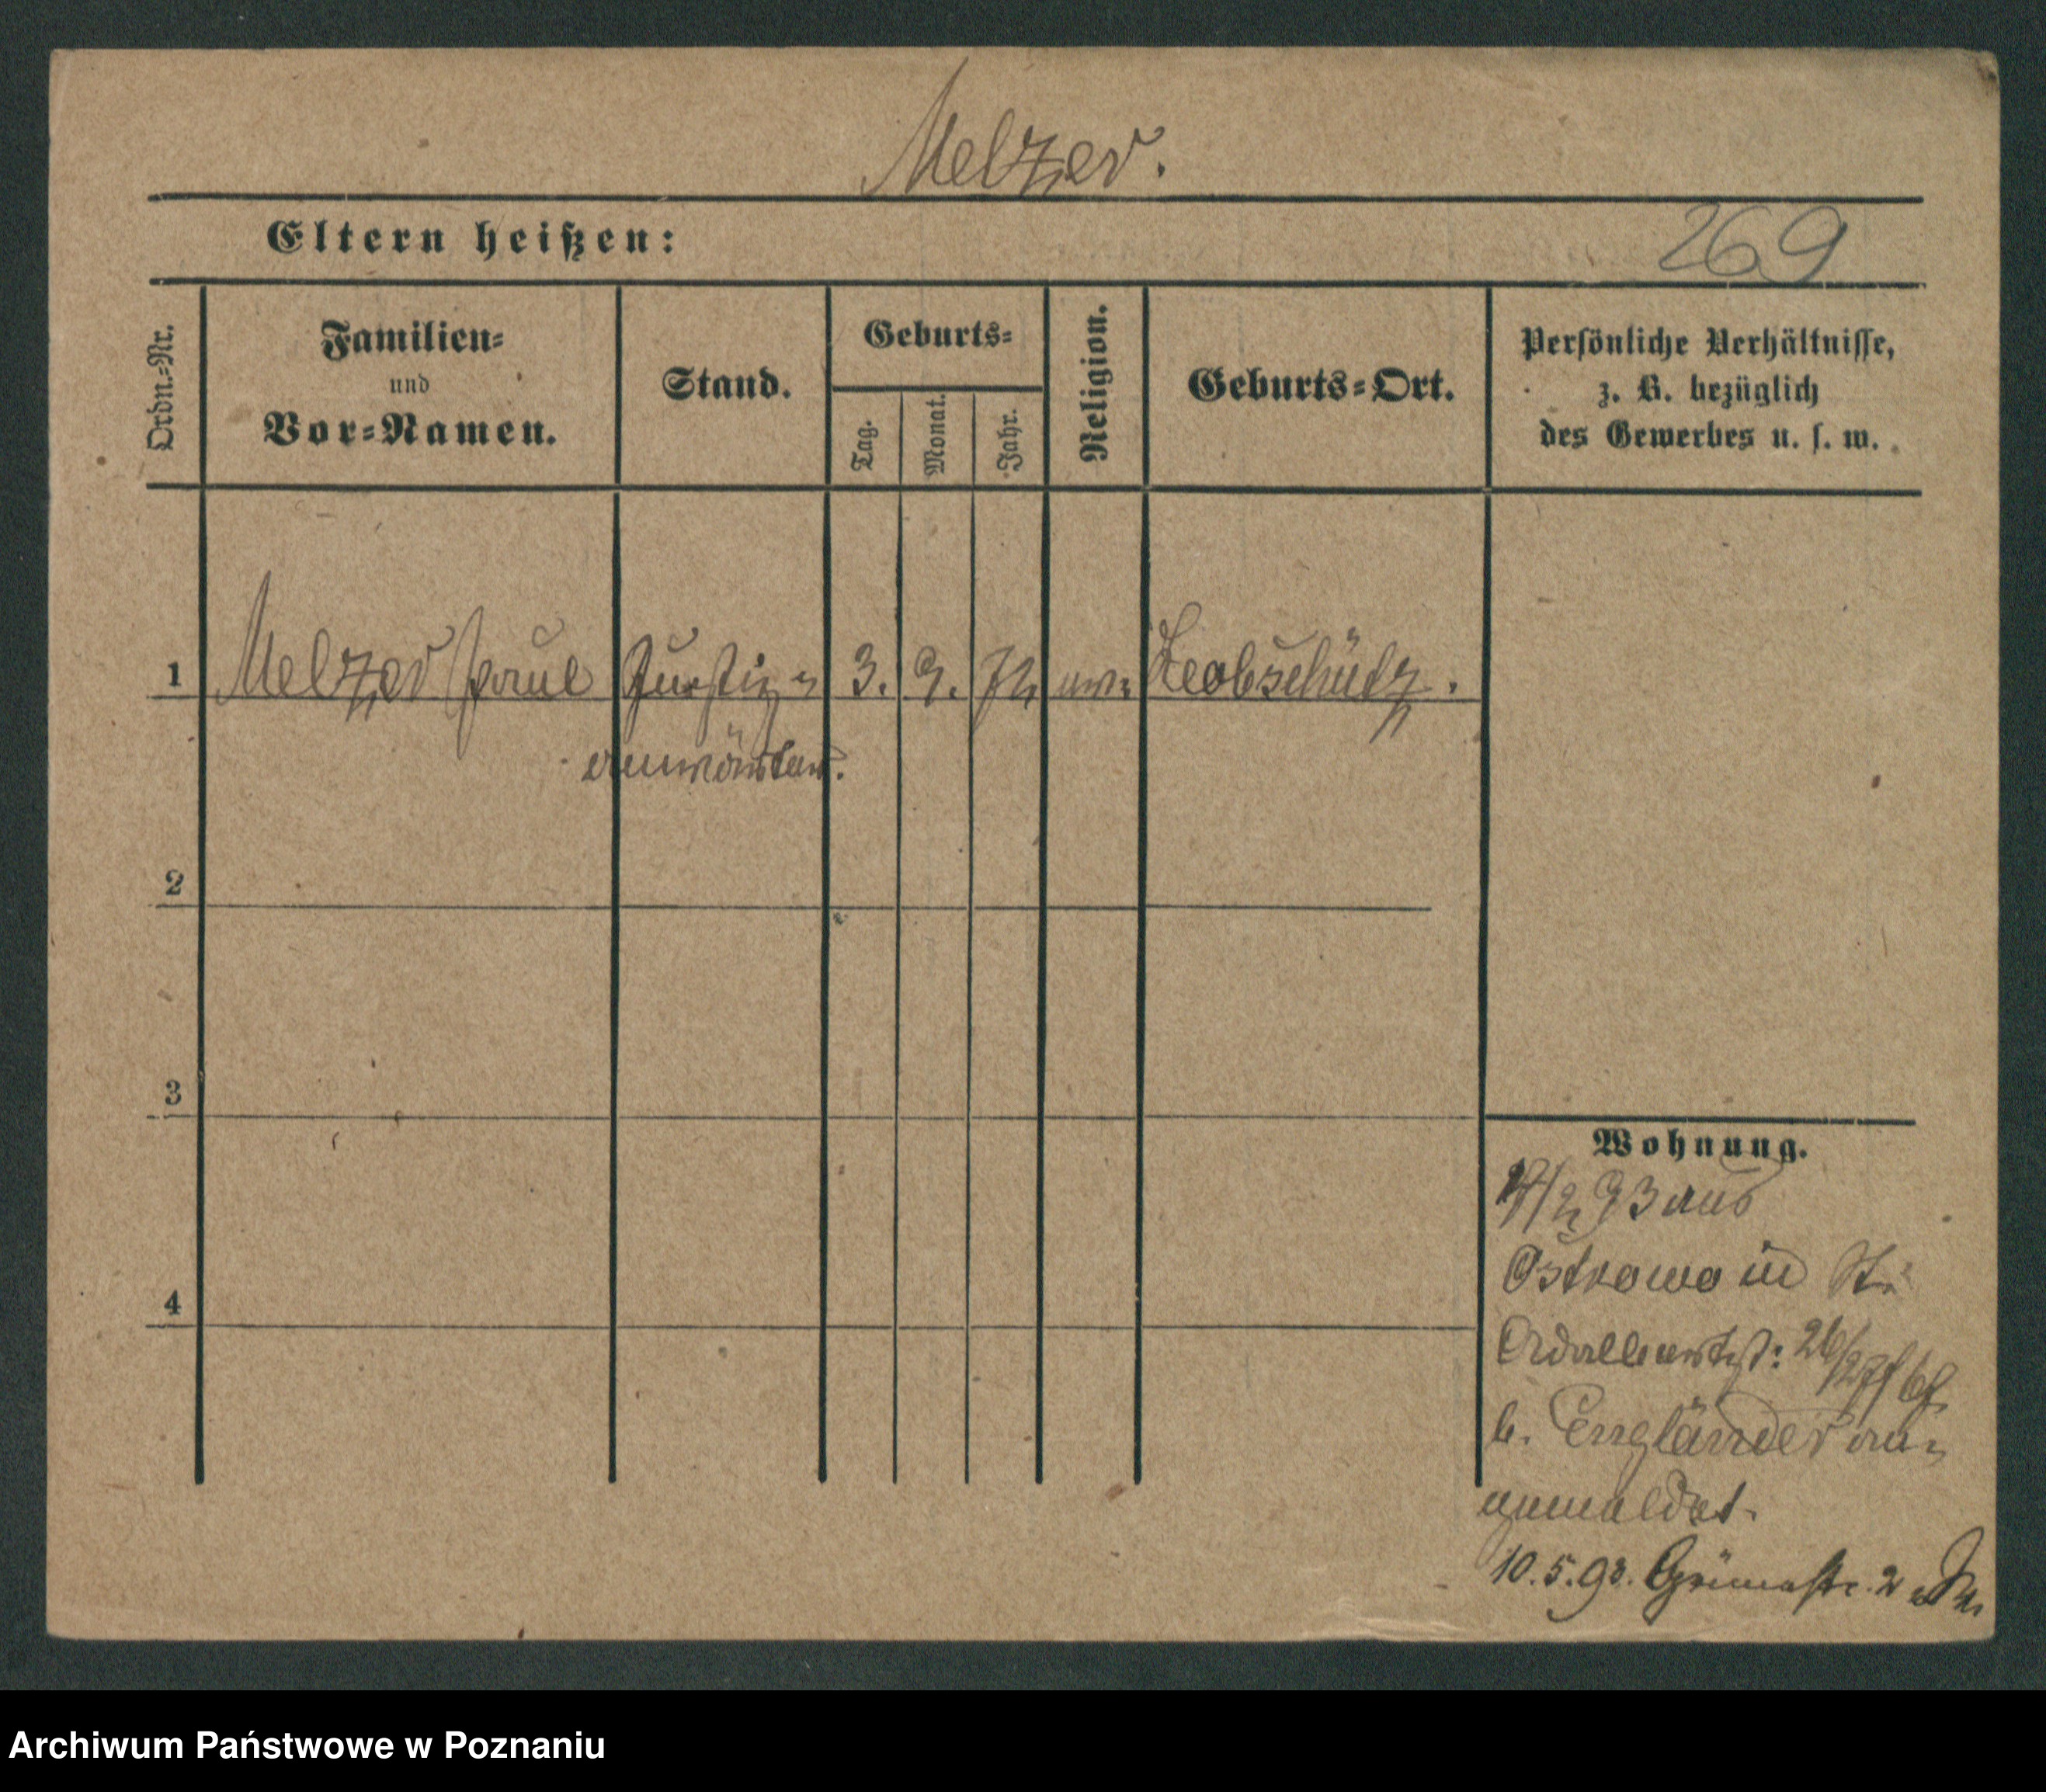 Melzer.
Eltern heißen:
269
Ordn.-Nr.
Familien-
und
Vor-Namen.
Stand.
Geburts-
Tag.
Monat.
Jahr.
Religion.
Geburts-Ort.
Persönliche Verhältnisse,
z. B. bezüglich
des Gewerbes u. s. w.
1 Melzer Paul Justiz- 3. 9. 72 Leobschütz.
anwärter.
2
3
4
Wohnung.
93 aus
Ostrowo in St.
b. Engländer an-
gemeldet.
10.5.93. 2
Archiwum Państwowe w Poznaniu